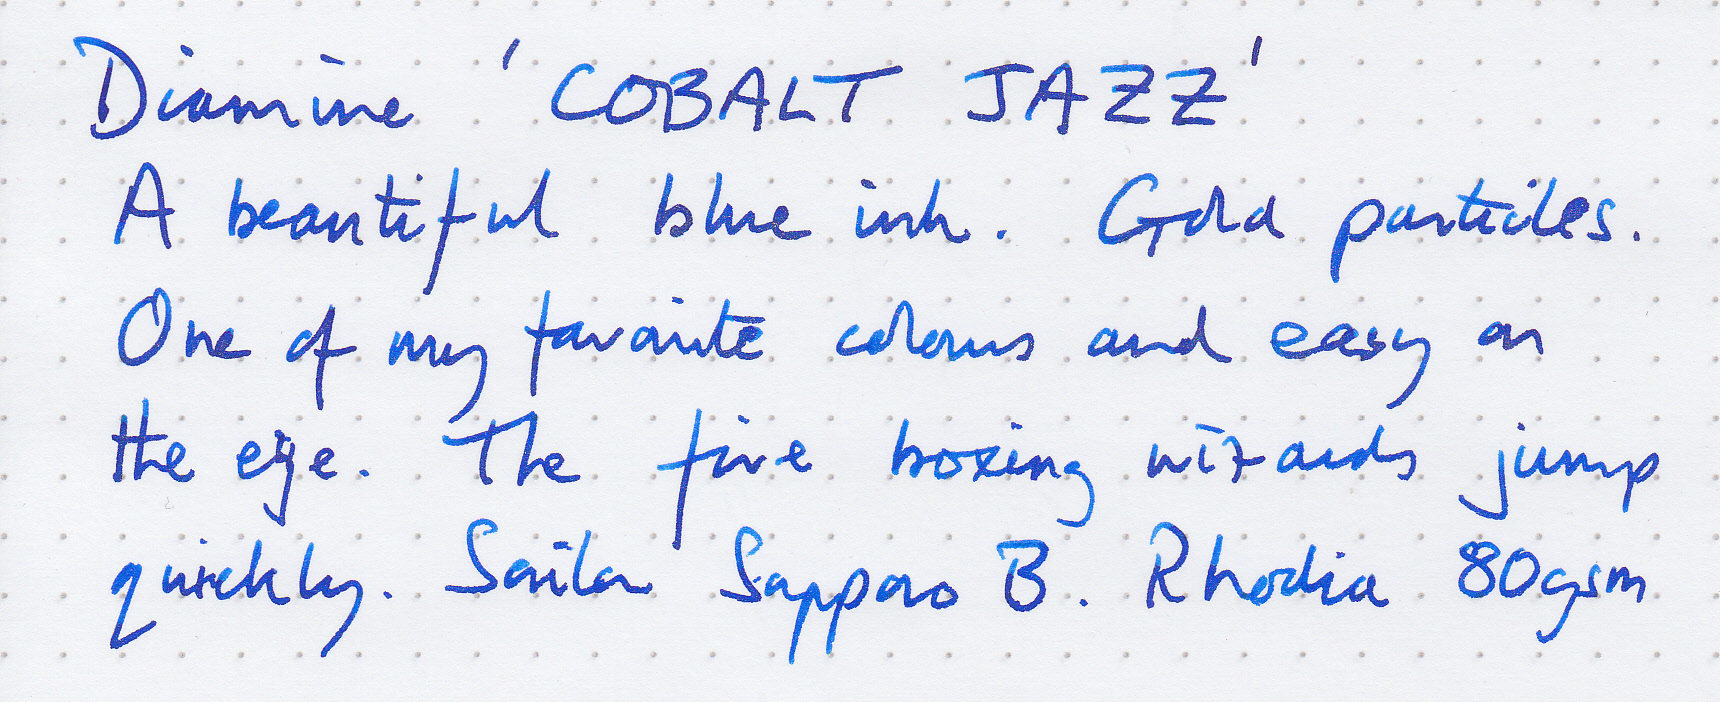 Diamine 'COBALT JAZZ'
A beautiful blue ink. Gold particles.
One of my favorite colours and easy on
the eye. The five boxing wizards jump
quickly. Sailor Sapporo B. Rhodia 80gsm